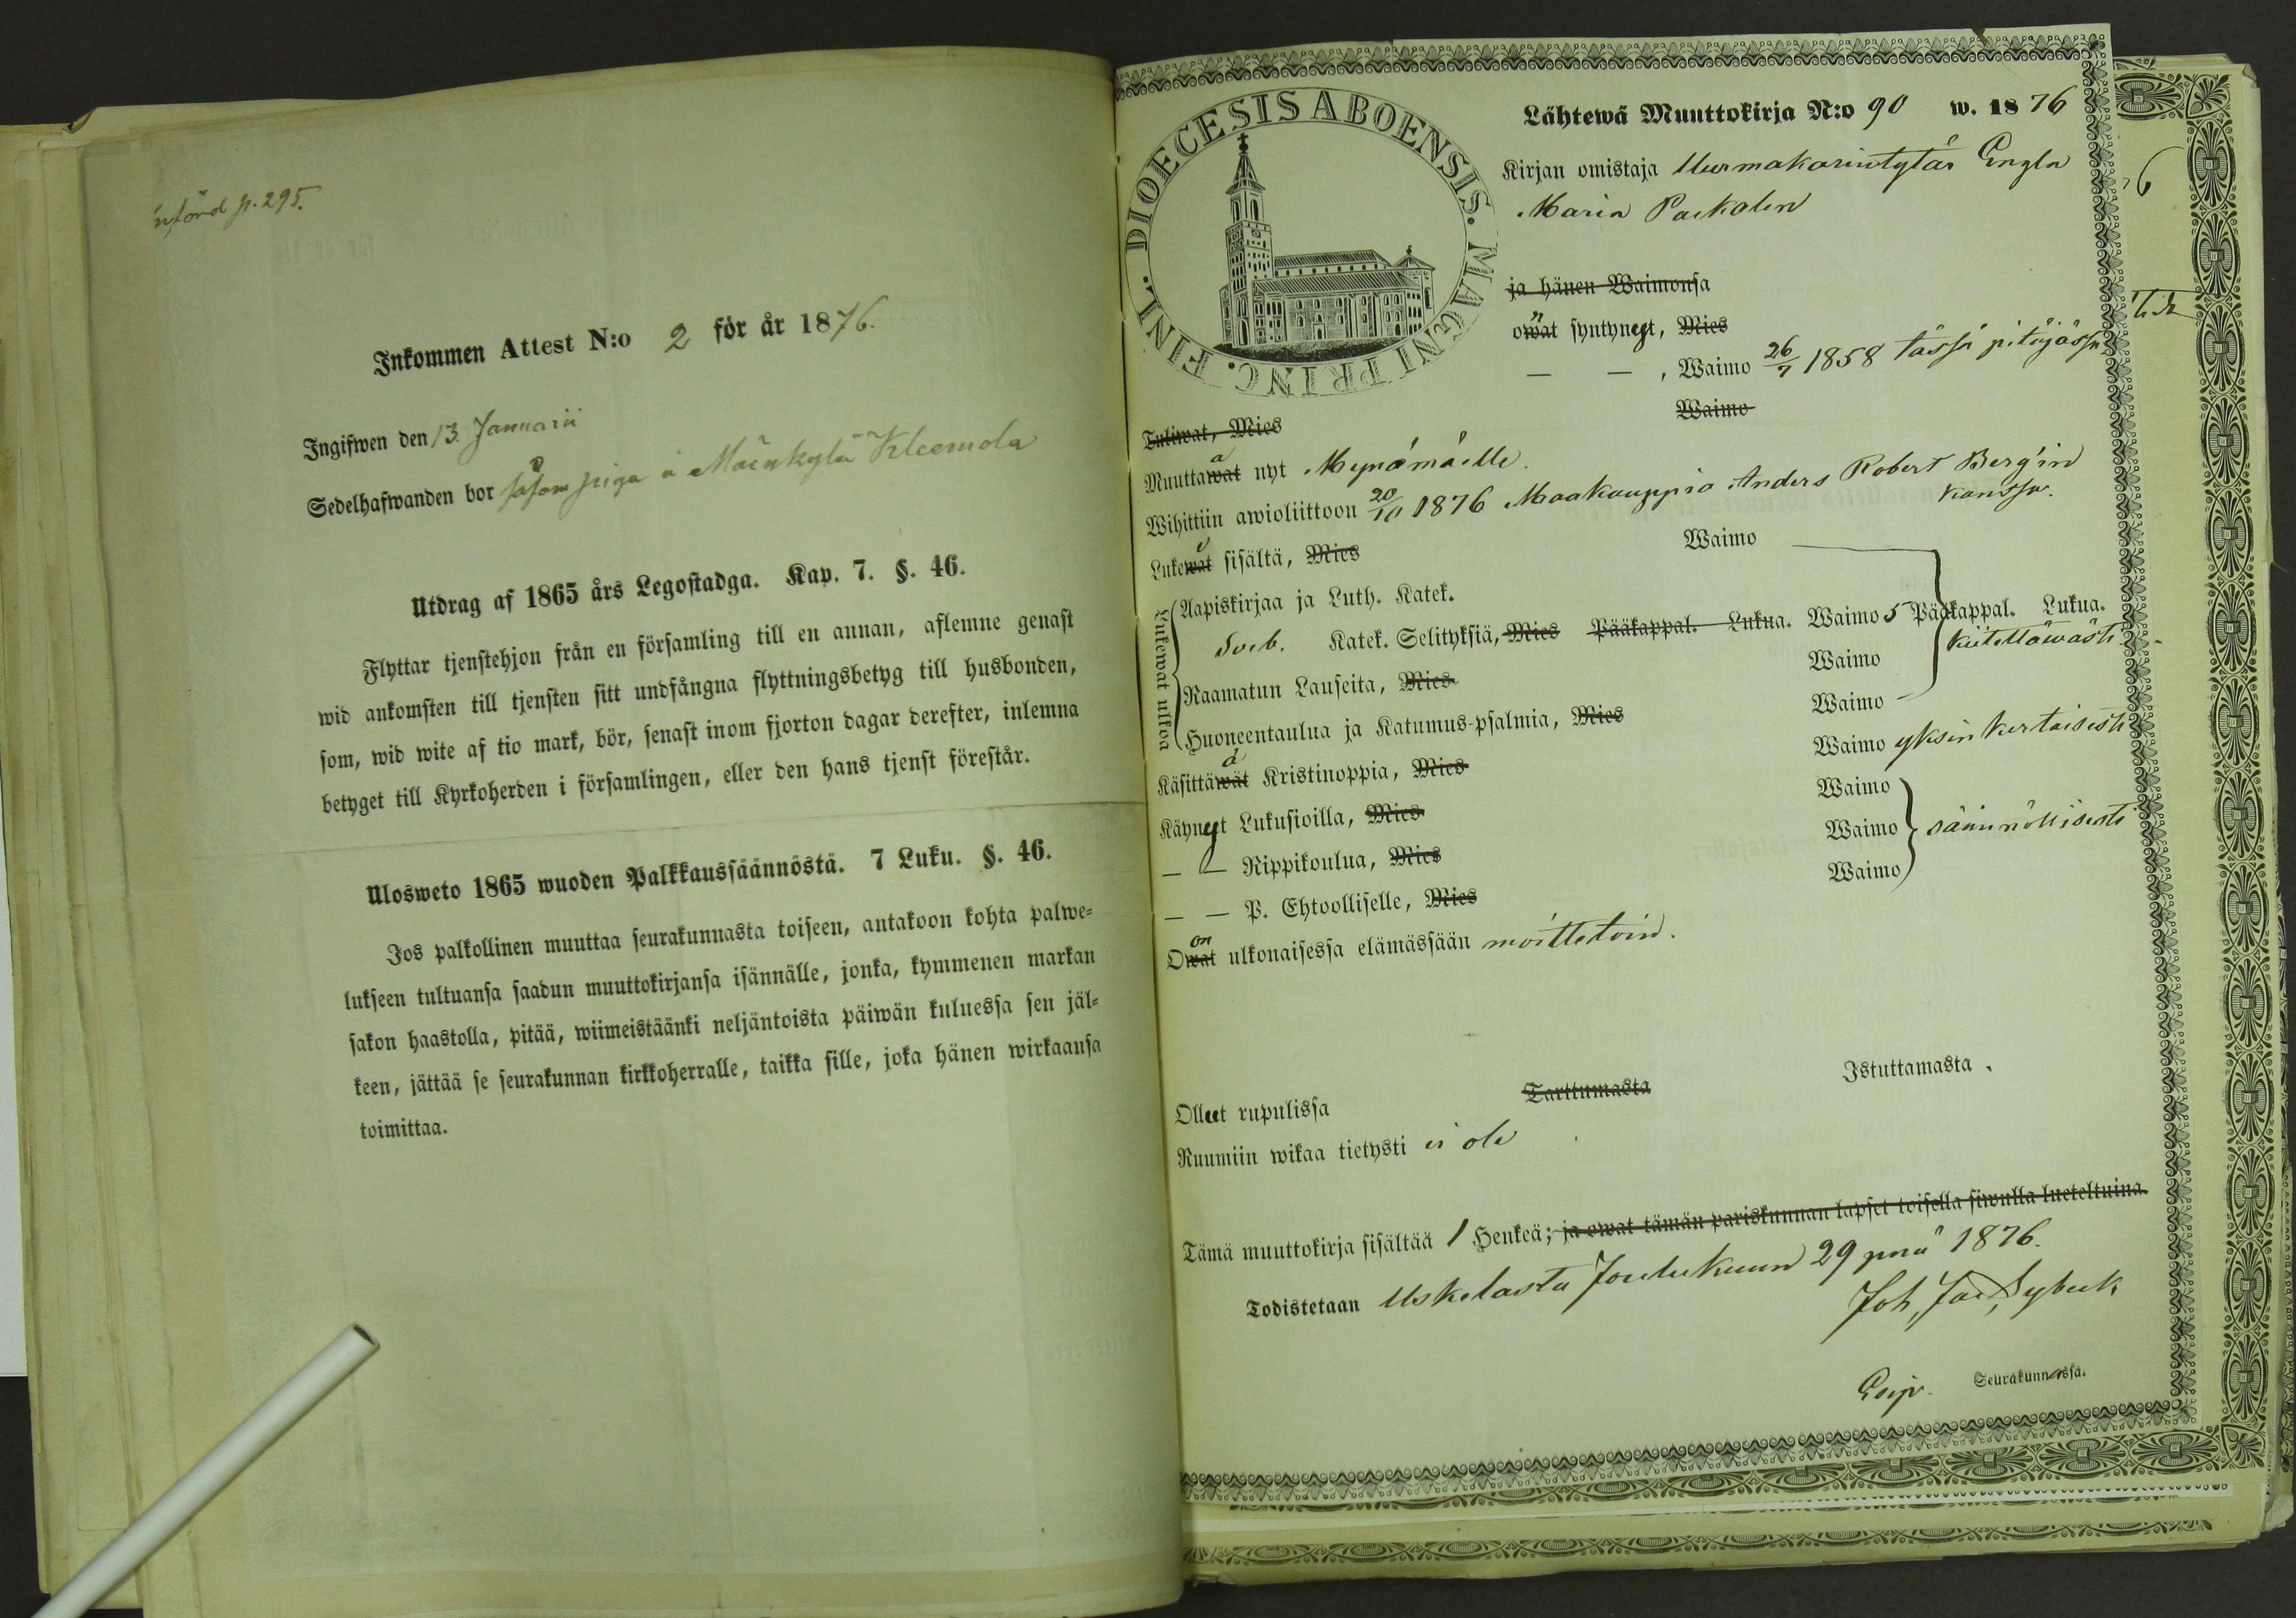 införd p. 295.
Inkommen Attest N:o 2 för år 1876.
Ingifwen den 13 Januarii
Sedelhafwanden bor såsom piga å Mäenkylä Kleemola
Utdrag af 1865 års Legostadga. Kap. 7. §. 46.
Flyttar tjenstehjon från en församling till en annan, aflemne genast
wid ankomsten till tjensten sitt undfångna flyttningsbetyg till husbonden,
som, wid wite af tio mark, bör, senast inom fjorton dagar derefter, inlemna
betyget till Kyrkoherden i församlingen, eller den hans tjenst förestår.
Ulosweto 1865 wuoden Palkkaussäännöstä. 7 Luku. §. 46.
Jos palkollinen muuttaa seurakunnasta toiseen, antakoon kohta palwe-
lukseen tultuansa saadun muuttokirjansa isännälle, jonka, kymmenen markan
sakon haastolla, pitää, wiimeistäänki neljäntoista päiwän kuluessa sen jäl-
keen, jättää se seurakunnan kirkkoherralle, taikka sille, joka hänen wirkaansa
toimittaa.
DIOECESIS ABOENSIS. MAGNI PRINC. FINL.
Lähtewä Muuttokirja N:o 90 w. 1876
Kirjan omistaja Uurmakarintytär Engla
Maria
ja hänen Waimonsa
owat syntynyt, Mies
— — , Waimo 26/7 1858 tässä pitäjässä
Tuliwat, Mies Waimo
Muuttawat a nyt Mynämäelle.
Wihittiin awioliittoon 20/10 1876 Maakauppia Anders Robert Berg'in
kanssa.
Lukewat sisältä, Mies Waimo
Lukewat ulkoa
Aapiskirjaa ja Luth. Katek.
Sveb. Katek. Selityksiä, Mies Pääkappal. Lukua. Waimo 5 Pääkappal. Lukua.
kiitettäwästi
Raamatun Lauseita, Mies Waimo
Huoneentaulua ja Katumus-psalmia, Mies Waimo
Käsittäwät ä Kristinoppia, Mies Waimo yksinkertaisesti
Käynyt Lukusioilla, Mies Waimo
— — Rippikoulua, Mies Waimo säännöllisesti
— — P. Ehtoolliselle, Mies Waimo
Owat on ulkonaisessa elämässään moittetoin.
Ollut rupulissa Tarttumasta Istuttamasta.
Ruumiin wikaa tietysti ei ole
Tämä muuttokirja sisältää 1 Henkeä; ja owat tämän pariskunnan lapset toisella siwulla lueteltuina.
Todistetaan Uskelasta Joulukuun 29 pnä 1876.
Joh. Jac.
Seurakunnassa.
6